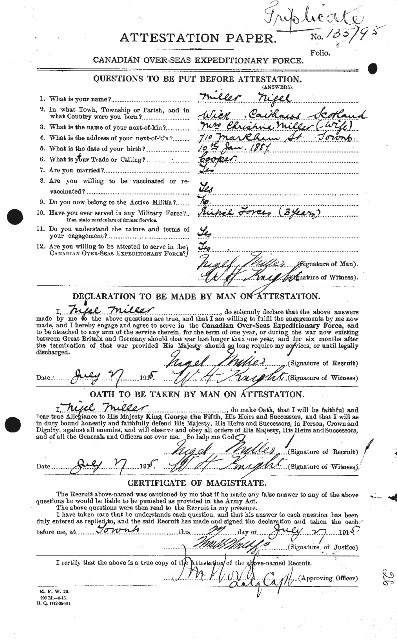 Triplicate
ATTESTATION PAPER.
No. 135795
Folio.
CANADIAN OVER-SEAS EXPEDITIONARY FORCE.
QUESTIONS TO BE PUT BEFORE ATTESTATION.
(ANSWERS).
1. What is your name? Miller Nigel
2. In what Town, Township or Parish, and in
what Country were you born? Wick Caithness Scotland
3. What is the name of your next-of-kin? Mrs Christina Miller (Wife)
4. What is the address of your next-of-kin? 710 Markham St Toronto
5. What is the date of your birth? 10th Jan. 1887
6. What is your Trade or Calling? Cooper
7. Are you married? Yes
8. Are you willing to be vaccinated or re-
vaccinated? Yes
9. Do you now belong to the Active Militia? No
10. Have you ever served in any Military Force? Forces (3 Years)
If so, state particulars of former Service.
11. Do you understand the nature and terms of
your engagement? Yes
12. Are you willing to be attested to serve in the
CANADIAN OVER-SEAS EXPEDITIONARY FORCE? Yes
Nigel Miller (Signature of Man).
W H Knight (Signature of Witness).
DECLARATION TO BE MADE BY MAN ON ATTESTATION.
I, Nigel Miller, do solemnly declare that the above answers
made by me to the above questions are true, and that I am willing to fulfil the engagements by me now
made, and I hereby engage and agree to serve in the Canadian Over-Seas Expeditionary Force, and
to be attached to any arm of the service therein, for the term of one year, or during the war now existing
between Great Britain and Germany should that war last longer than one year, and for six months after
the termination of that war provided His Majesty should so long require my services, or until legally
discharged.
Nigel Miller (Signature of Recruit)
Date July 27 1915. W H Knight (Signature of Witness)
OATH TO BE TAKEN BY MAN ON ATTESTATION.
I, Nigel Miller, do make Oath, that I will be faithful and
bear true Allegiance to His Majesty King George the Fifth, His Heirs and Successors, and that I will as
in duty bound honestly and faithfully defend His Majesty, His Heirs and Successors, in Person, Crown and
Dignity, against all enemies, and will observe and obey all orders of His Majesty, His Heirs and Successors,
and of all the Generals and Officers set over me. So help me God.
Nigel Miller (Signature of Recruit)
Date July 27 1915. W H Knight (Signature of Witness)
CERTIFICATE OF MAGISTRATE.
The Recruit above-named was cautioned by me that if he made any false answer to any of the above
questions he would be liable to be punished as provided in the Army Act.
The above questions were then read to the Recruit in my presence.
I have taken care that he understands each question, and that his answer to each question has been
duly entered as replied to, and the said Recruit has made and signed the declaration and taken the oath
before me, at Toronto this 27 day of July 1915
(Signature of Justice)
I certify that the above is a true copy of the Attestation of the above-named Recruit.
Capt (Approving Officer)
M. F. W. 23.